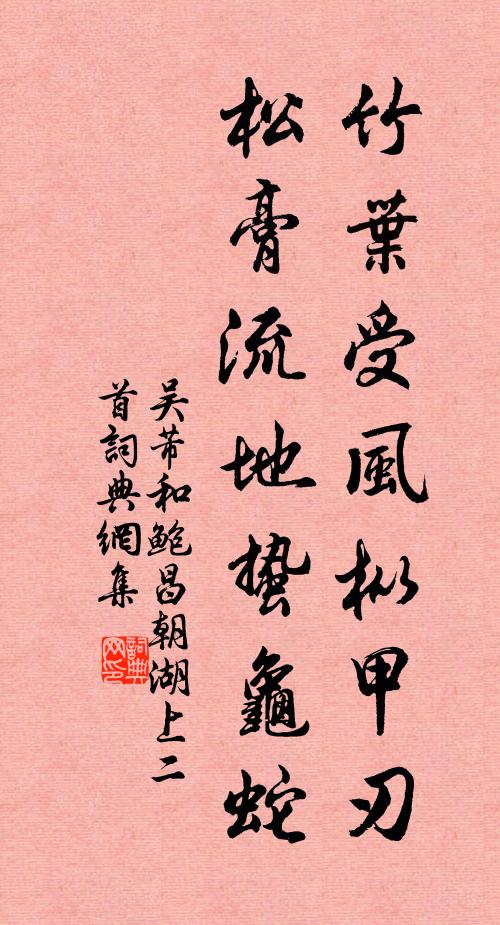 竹葉受風樅甲刃
松膏流地蟄龜蛇
吴芾和鮑昌朝湖上二
首詞典網集
詞典
网印